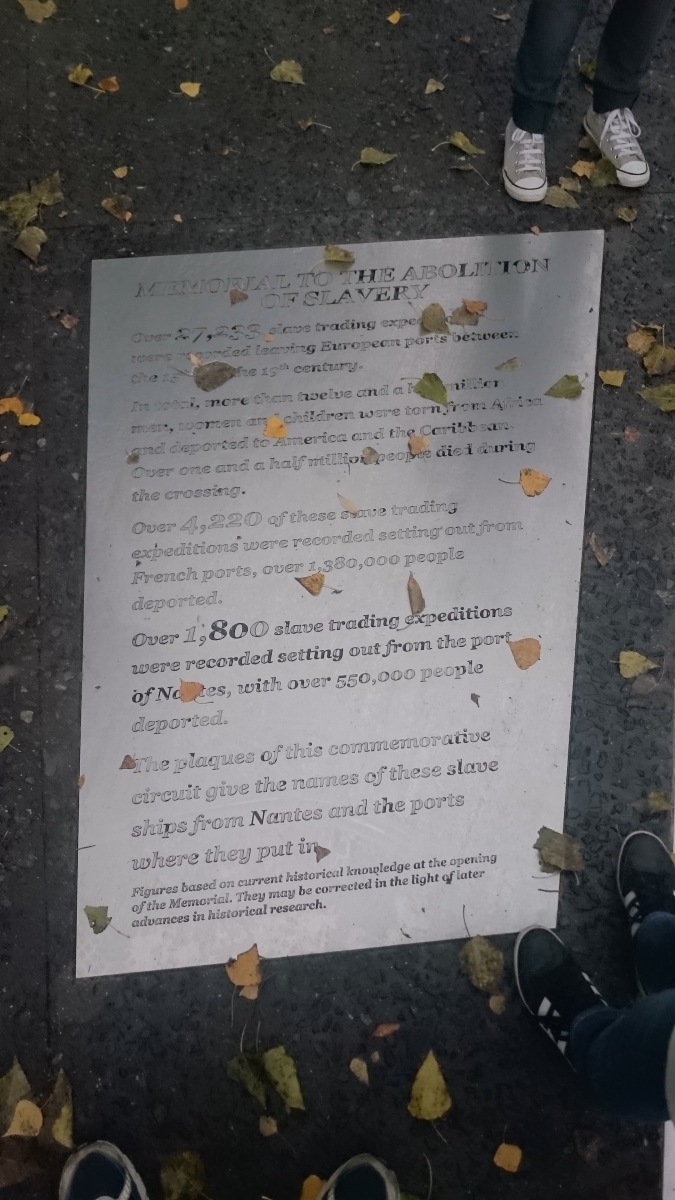 MEMORIAL TO THE ABOLITION
OF SLAVERY
Over 27,233 slave trading
were recorded leaving European ports between
the the 19th century.
In total, more than twelve and a million
men, women and children were torn from Africa
and deported to America and the Caribbean.
Over one and a half million people died during
the crossing.
Over 4,220 of these slave trading
expeditions were recorded setting out from
French ports, over 1,380,000 people
deported.
Over 1,800 slave trading expeditions
were recorded setting out from the port
of Nantes, with over 550,000 people
deported.
The plaques of this commemorative
circuit give the names of these slave
ships from Nantes and the ports
where they put in.
Figures based on current historical knowledge at the opening
of the Memorial. They may be corrected in the light of later
advances in historical research.